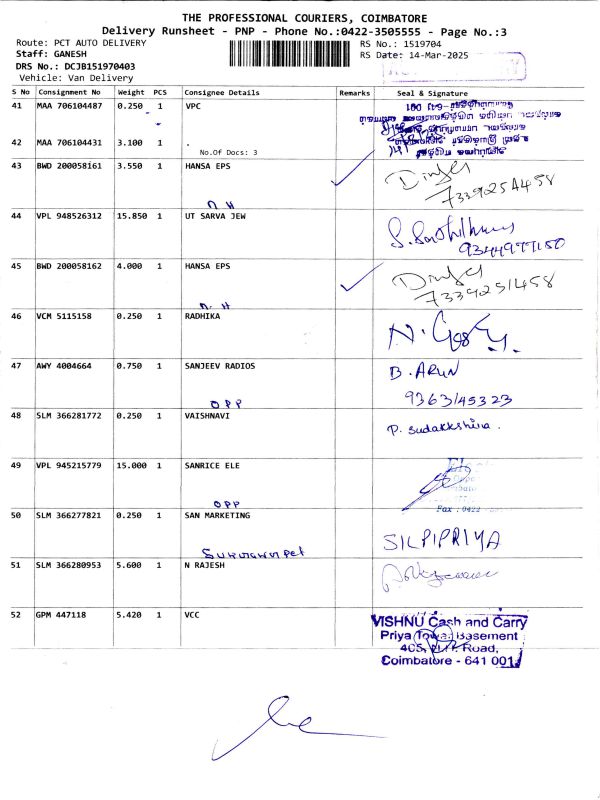 THE PROFESSIONAL COURIERS, COIMBATORE
Delivery Runsheet - PNP - Phone No.:0422-3505555 - Page No.:3
Route: PCT AUTO DELIVERY RS No.: 1519704
Staff: GANESH RS Date: 14-Mar-2025
DRS No.: DCJB151970403
Vehicle: Van Delivery
S No Consignment No Weight PCS Consignee Details Remarks Seal & Signature
41 MAA 706104487 0.250 1 VPC
42 MAA 706104431 3.100 1 .
No.Of Docs: 3
43 BWD 200058161 3.550 1 HANSA EPS
n H
44 VPL 948526312 15.850 1 UT SARVA JEW
9344977150
45 BWD 200058162 4.000 1 HANSA EPS
7339251458
n. H
46 VCM 5115158 0.250 1 RADHIKA
47 AWY 4004664 0.750 1 SANJEEV RADIOS B. ARUN
OPP 9363145323
48 SLM 366281772 0.250 1 VAISHNAVI P. Sudakkshina.
49 VPL 945215779 15.000 1 SANRICE ELE
OPP Fax : 0422
50 SLM 366277821 0.250 1 SAN MARKETING
SILPIPRIYA
51 SLM 366280953 5.600 1 N RAJESH
52 GPM 447118 5.420 1 VCC VISHNU Cash and Carry
Priya Towal Basement
Road,
Coimbatore - 641 001